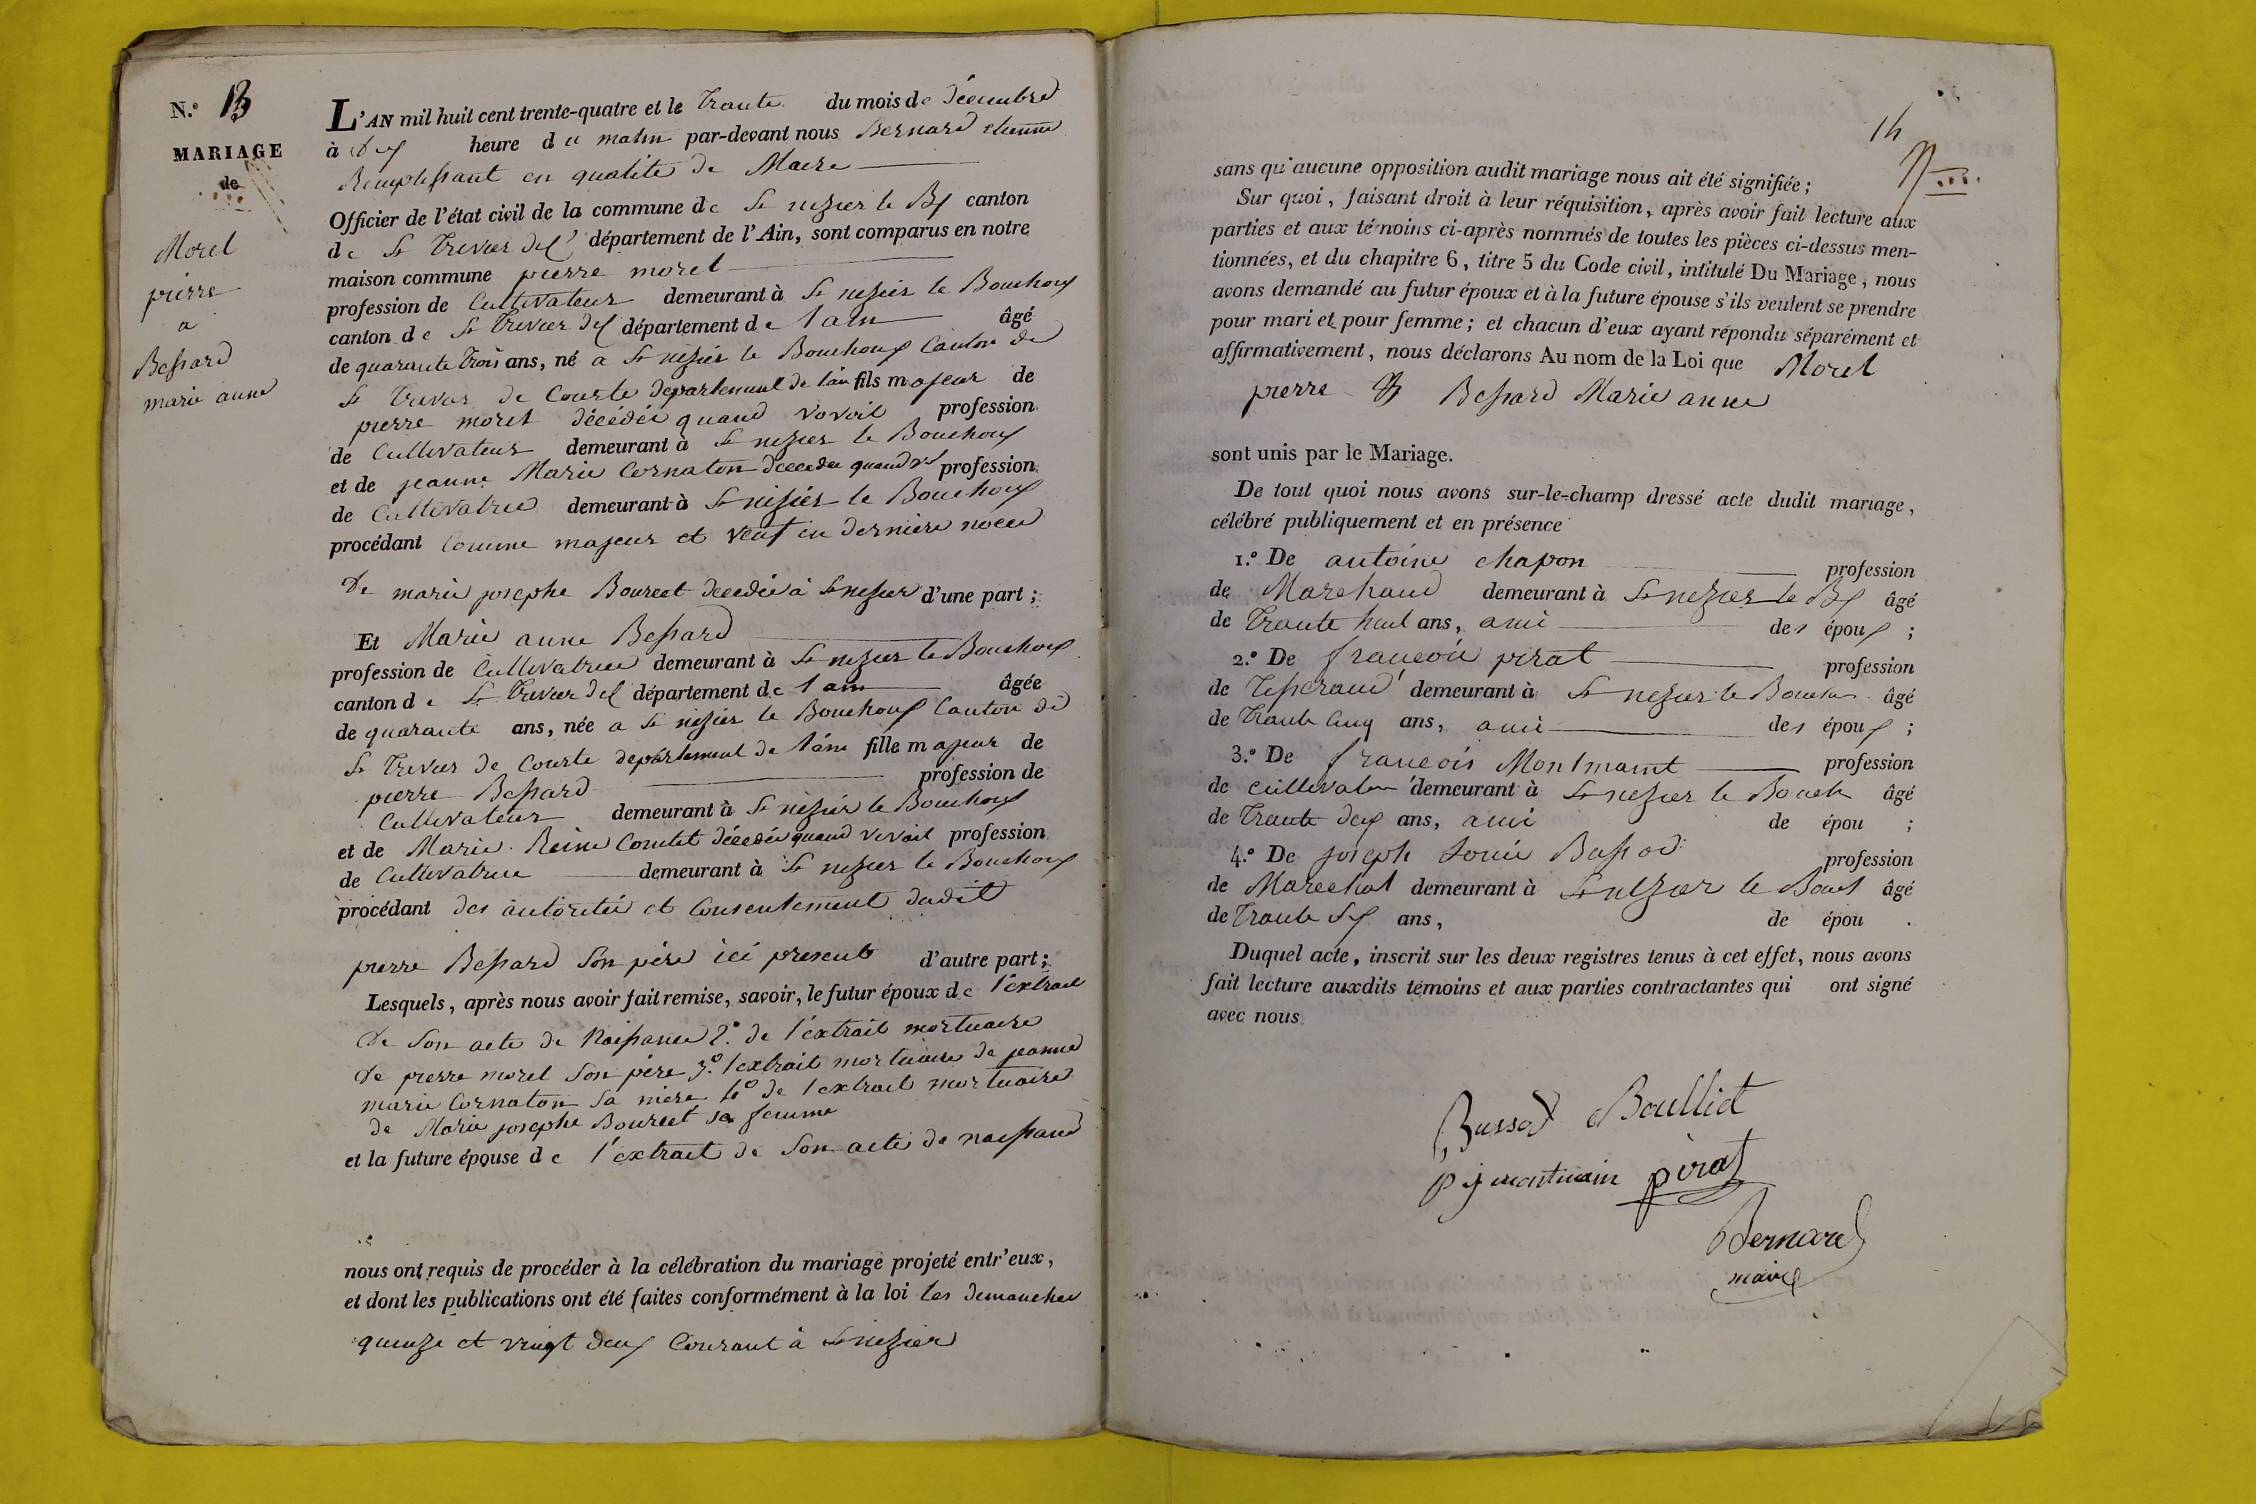 N.º 13
MARIAGE
de
Morel
pierre
a
Bessard
marie anne
L'AN mil huit cent trente-quatre et le trante du mois de décembre
à dix heure du matin par-devant nous Bernard etienne
Remplissant en qualité de Maire
Officier de l'état civil de la commune de St nizier le Bx canton
de St trivier de Cte département de l'Ain, sont comparus en notre
maison commune pierre morel
profession de Cultivateur demeurant à St nizier le Bouchoux
canton de St trivier de C département de l ain âgé
de quarante trois ans, né a St nizier le Bouchoux Canton de
St trivier de Courte departement de l'ain fils majeur de
pierre morel décédée quand vivoit profession
de Cultivateur demeurant à St nizier le Bouchoux
et de jeanne Marie Cornaton décédée quand vt profession
de Cultivatrice demeurant à St nizier le Bouchoux
procédant Comme majeur et veuf en dernière noce
de marie josephe Bourcet decedée à St nizier d'une part ;
Et Marie anne Bessard
profession de Cultivatrice demeurant à St nizier le Bouchoux
canton de St trivier de C département de l ain âgée
de quarante ans, née a St nizier le Bouchoux Canton de
St trivier de Courte departement de l'ain fille majeur de
pierre Bessard profession de
Cultivateur demeurant à St nizier le Bouchoux
et de Marie Reine Comtet décédée quand vivoit profession
de Cultivatrice demeurant à St nizier le Bouchoux
procédant des autoritée et Consentement dudit
pierre Bessard Son père ici present d'autre part ;
Lesquels, après nous avoir fait remise, savoir, le futur époux de l'extrait
de Son acte de Naissance 2.º de l'extrait mortuaire
de pierre morel Son père 3.º l'extrait mortuaire de jeanne
marie Cornaton Sa mère 4º de l'extrait mortuaire
de Marie josephe Bourcet sa femme
et la future épouse de l'extrait de Son acte de naissance
nous ont requis de procéder à la célébration du mariage projeté entr'eux,
et dont les publications ont été faites conformément à la loi les demanches
quinze et vingt deux Courant à St nizier
14
sans qu'aucune opposition audit mariage nous ait été signifiée ;
Sur quoi, faisant droit à leur réquisition, après avoir fait lecture aux
parties et aux témoins ci-après nommés de toutes les pièces ci-dessus men-
tionnées, et du chapitre 6, titre 5 du Code civil, intitulé Du Mariage, nous
avons demandé au futur époux et à la future épouse s'ils veulent se prendre
pour mari et pour femme ; et chacun d'eux ayant répondu séparément et
affirmativement, nous déclarons Au nom de la Loi que Morel
pierre & Bessard Marie anne
sont unis par le Mariage.
De tout quoi nous avons sur-le-champ dressé acte dudit mariage,
célébré publiquement et en présence
1.º De antoine chapon profession
de Marchand demeurant à St nizier le Bx âgé
de trante huit ans, ami des époux ;
2.º De francois pirat profession
de Tisserand demeurant à St nizier le Bouchx âgé
de trante cinq ans, ami des époux ;
3.º De francois Montmaint profession
de cultivateur demeurant à St nizier le Bouch âgé
de trante deux ans, ami de épou ;
4.º De joseph Louis Bassod profession
de Marechal demeurant à St nizier le Bouch âgé
de trante six ans, de épou .
Duquel acte, inscrit sur les deux registres tenus à cet effet, nous avons
fait lecture auxdits témoins et aux parties contractantes qui ont signé
avec nous.
Bussod Boulliet
montmain pirat
Bernard
maire